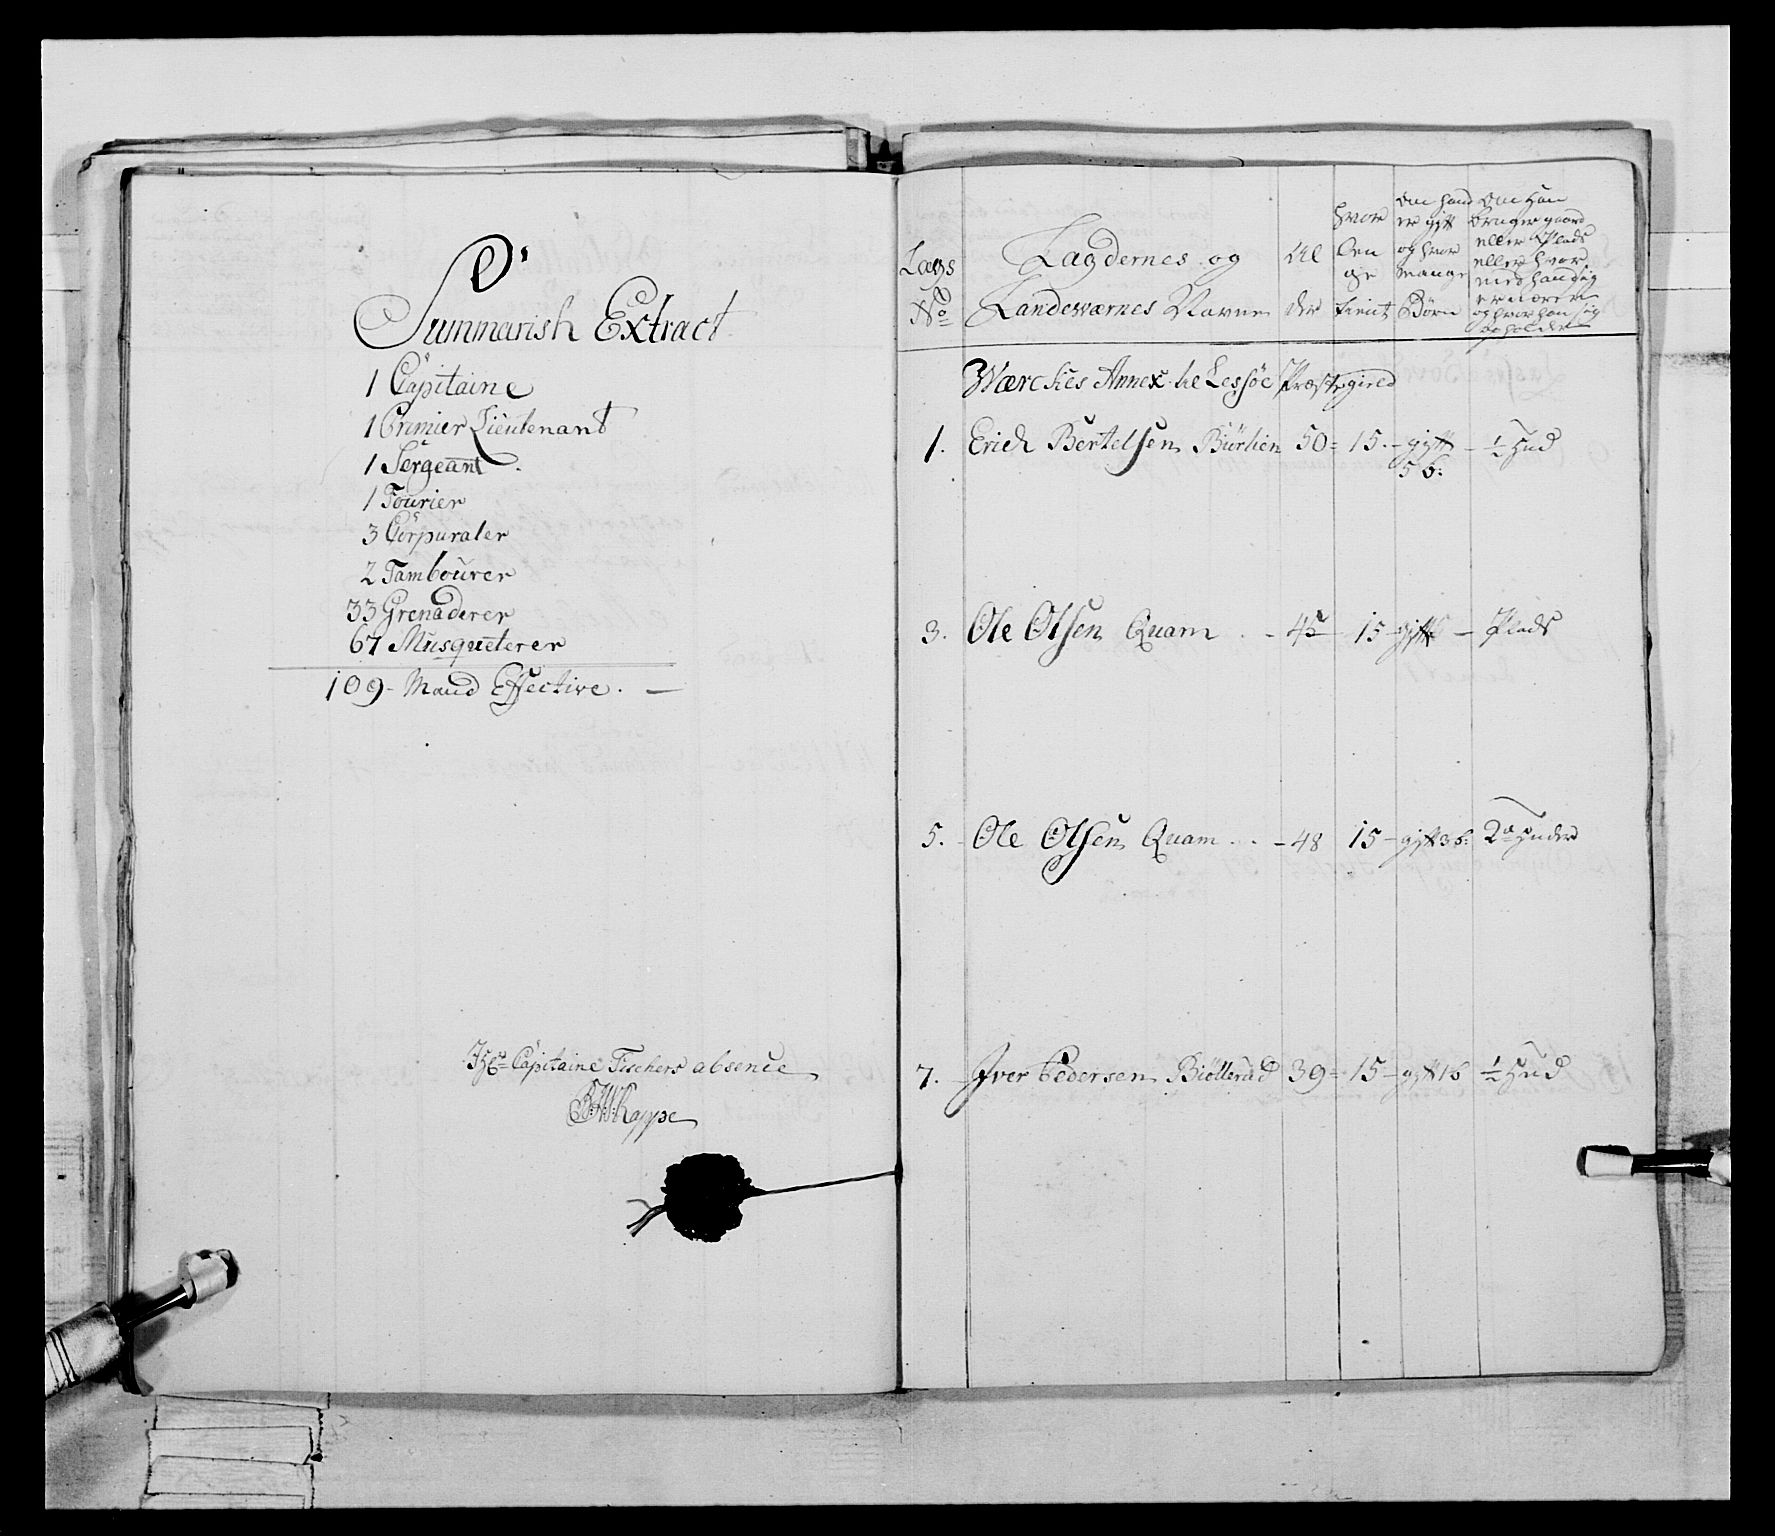 Summarisk Extract
1 Capitaine
1 Premier Lieutenant
1 Sergeant.
1 Fourier
3 Corpuraler
2 Tambourer
33 Grenaderer
67 Musqueterer
109 - Mand Effective. —
Capitaine Fischers absence
Kappe
Lægs No
Lægdernes og Landeværnes Navne
Al der
hvor len ge tient
Om hand er gift og hvor mange Børn
Om han bruger gaard eller Plads eller hvor med hand sig ernærer og hvor han sig opholder
Værckes Annex til Lessøe Præstegield
1. Erich Bertelsen Biørlien 50 = 15. - gift 5 b: - ½ Hud
3. Ole Olsen Quam . - 45 - 15 - gift - Plads
5. Ole Olsen Quam . . - 48 15 - gift 3 b: 2 Huder
7. Iver Pedersen Biöllerud 39 = 15 - gift 1 b ½ Hud